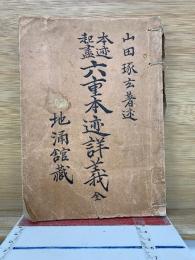 山田琢玄著述
本迹
起盡
六重本迹詳義 全
地涌舘藏